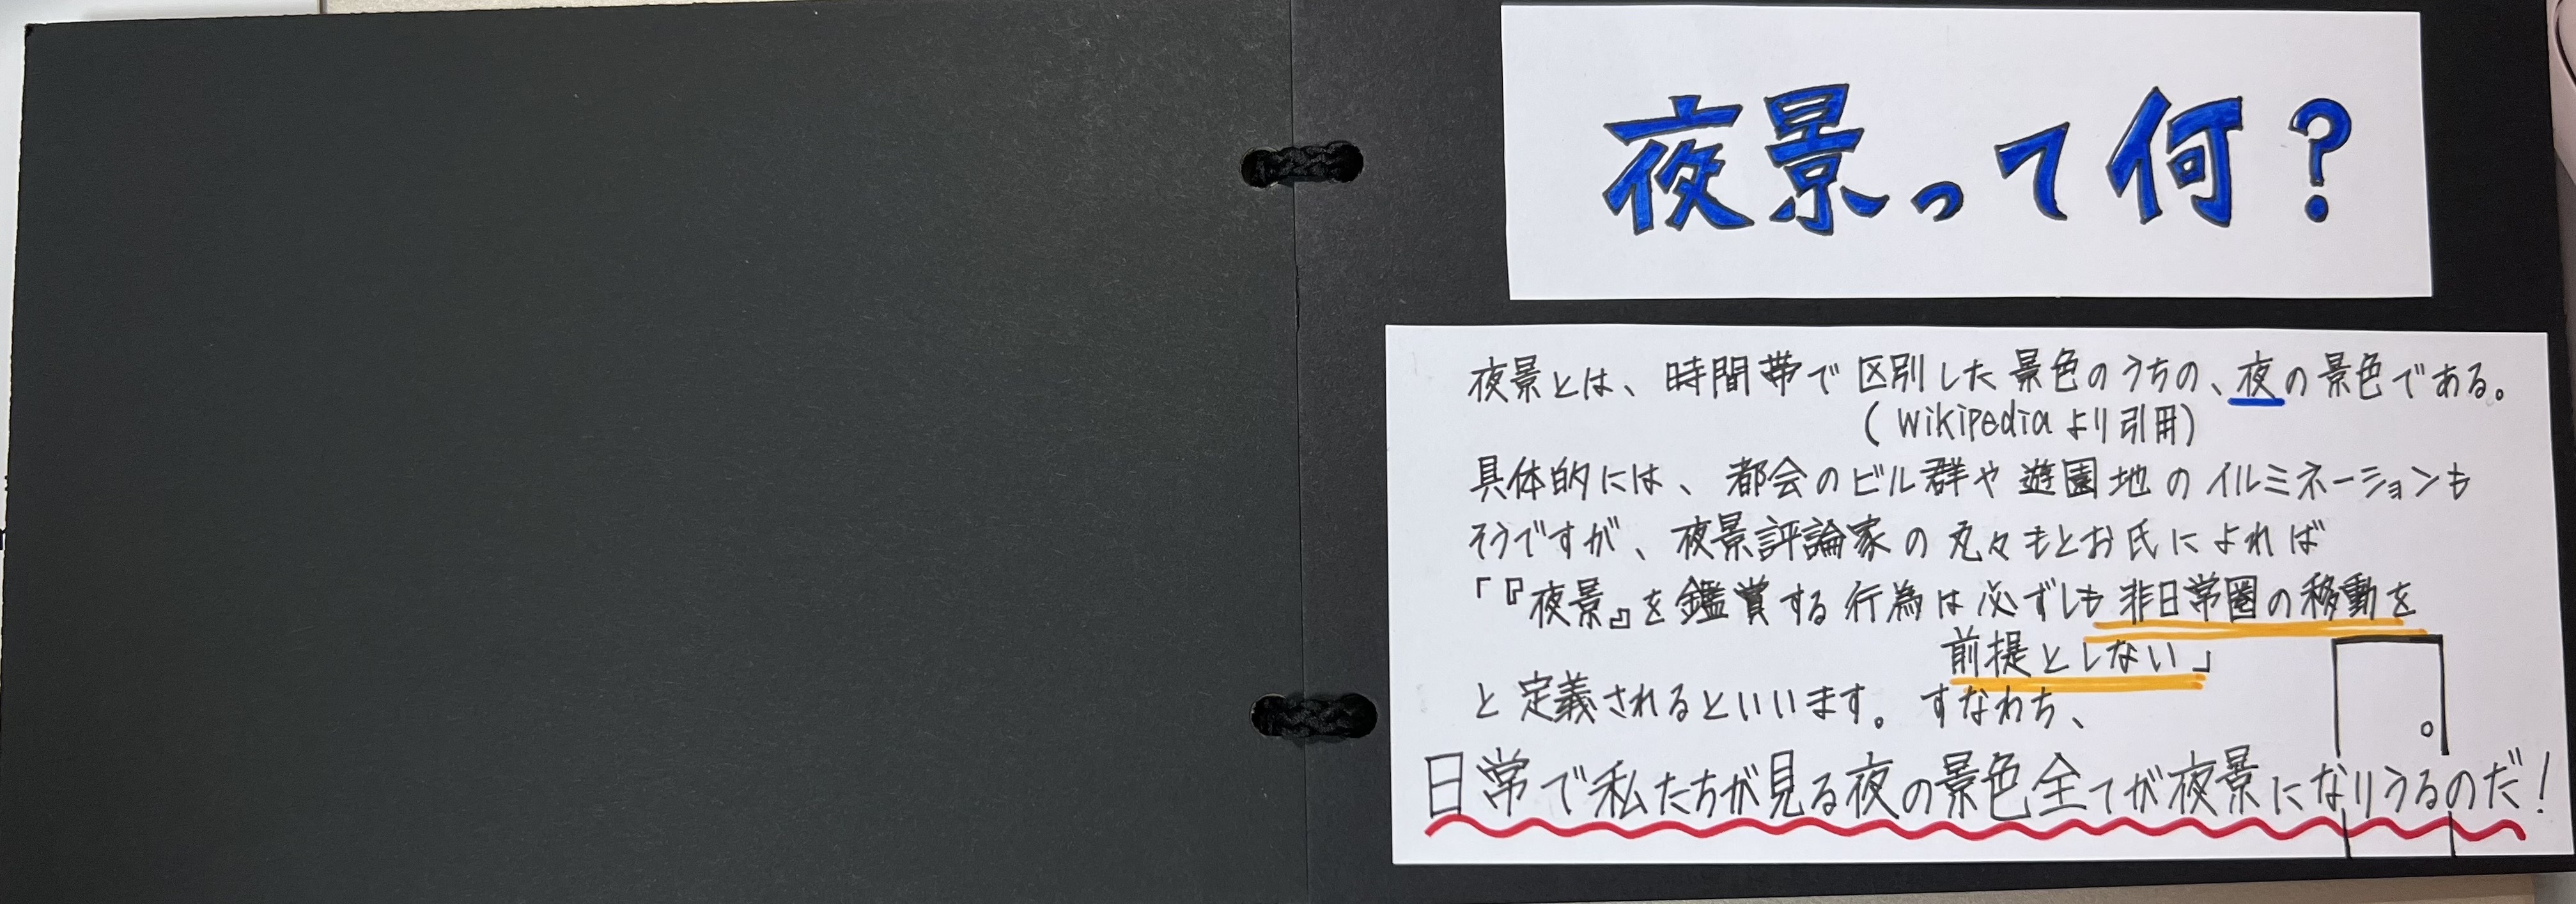 夜景って何?
夜景とは、時間帯で区別した景色のうちの、夜の景色である。
(Wikipediaより引用)
具体的には、都会のビル群や遊園地のイルミネーションも
そうですが、夜景評論家の丸々もとお氏によれば
「『夜景』を鑑賞する行為は必ずしも非日常圏の移動を
前提としない」
と定義されるといいます。すなわち、
日常で私たちが見る夜の景色全てが夜景になりうるのだ!